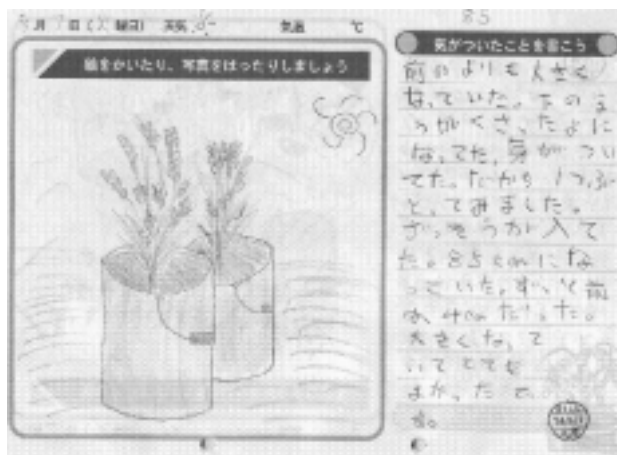 月7日(曜日) 天気 気温 ℃
絵をかいたり、写真をはったりしましょう
85
気がついたことを書こう
前のよりも大きく
なっていた。下のよ
うがくさったように
なってた。気がつい
てた。だから1つぶ
とってみました。
ざっそうが入って
た。85cmにな
っていた。ずっと前
は、4cmだった。
大きくなって
いてとても
よかったで
す。